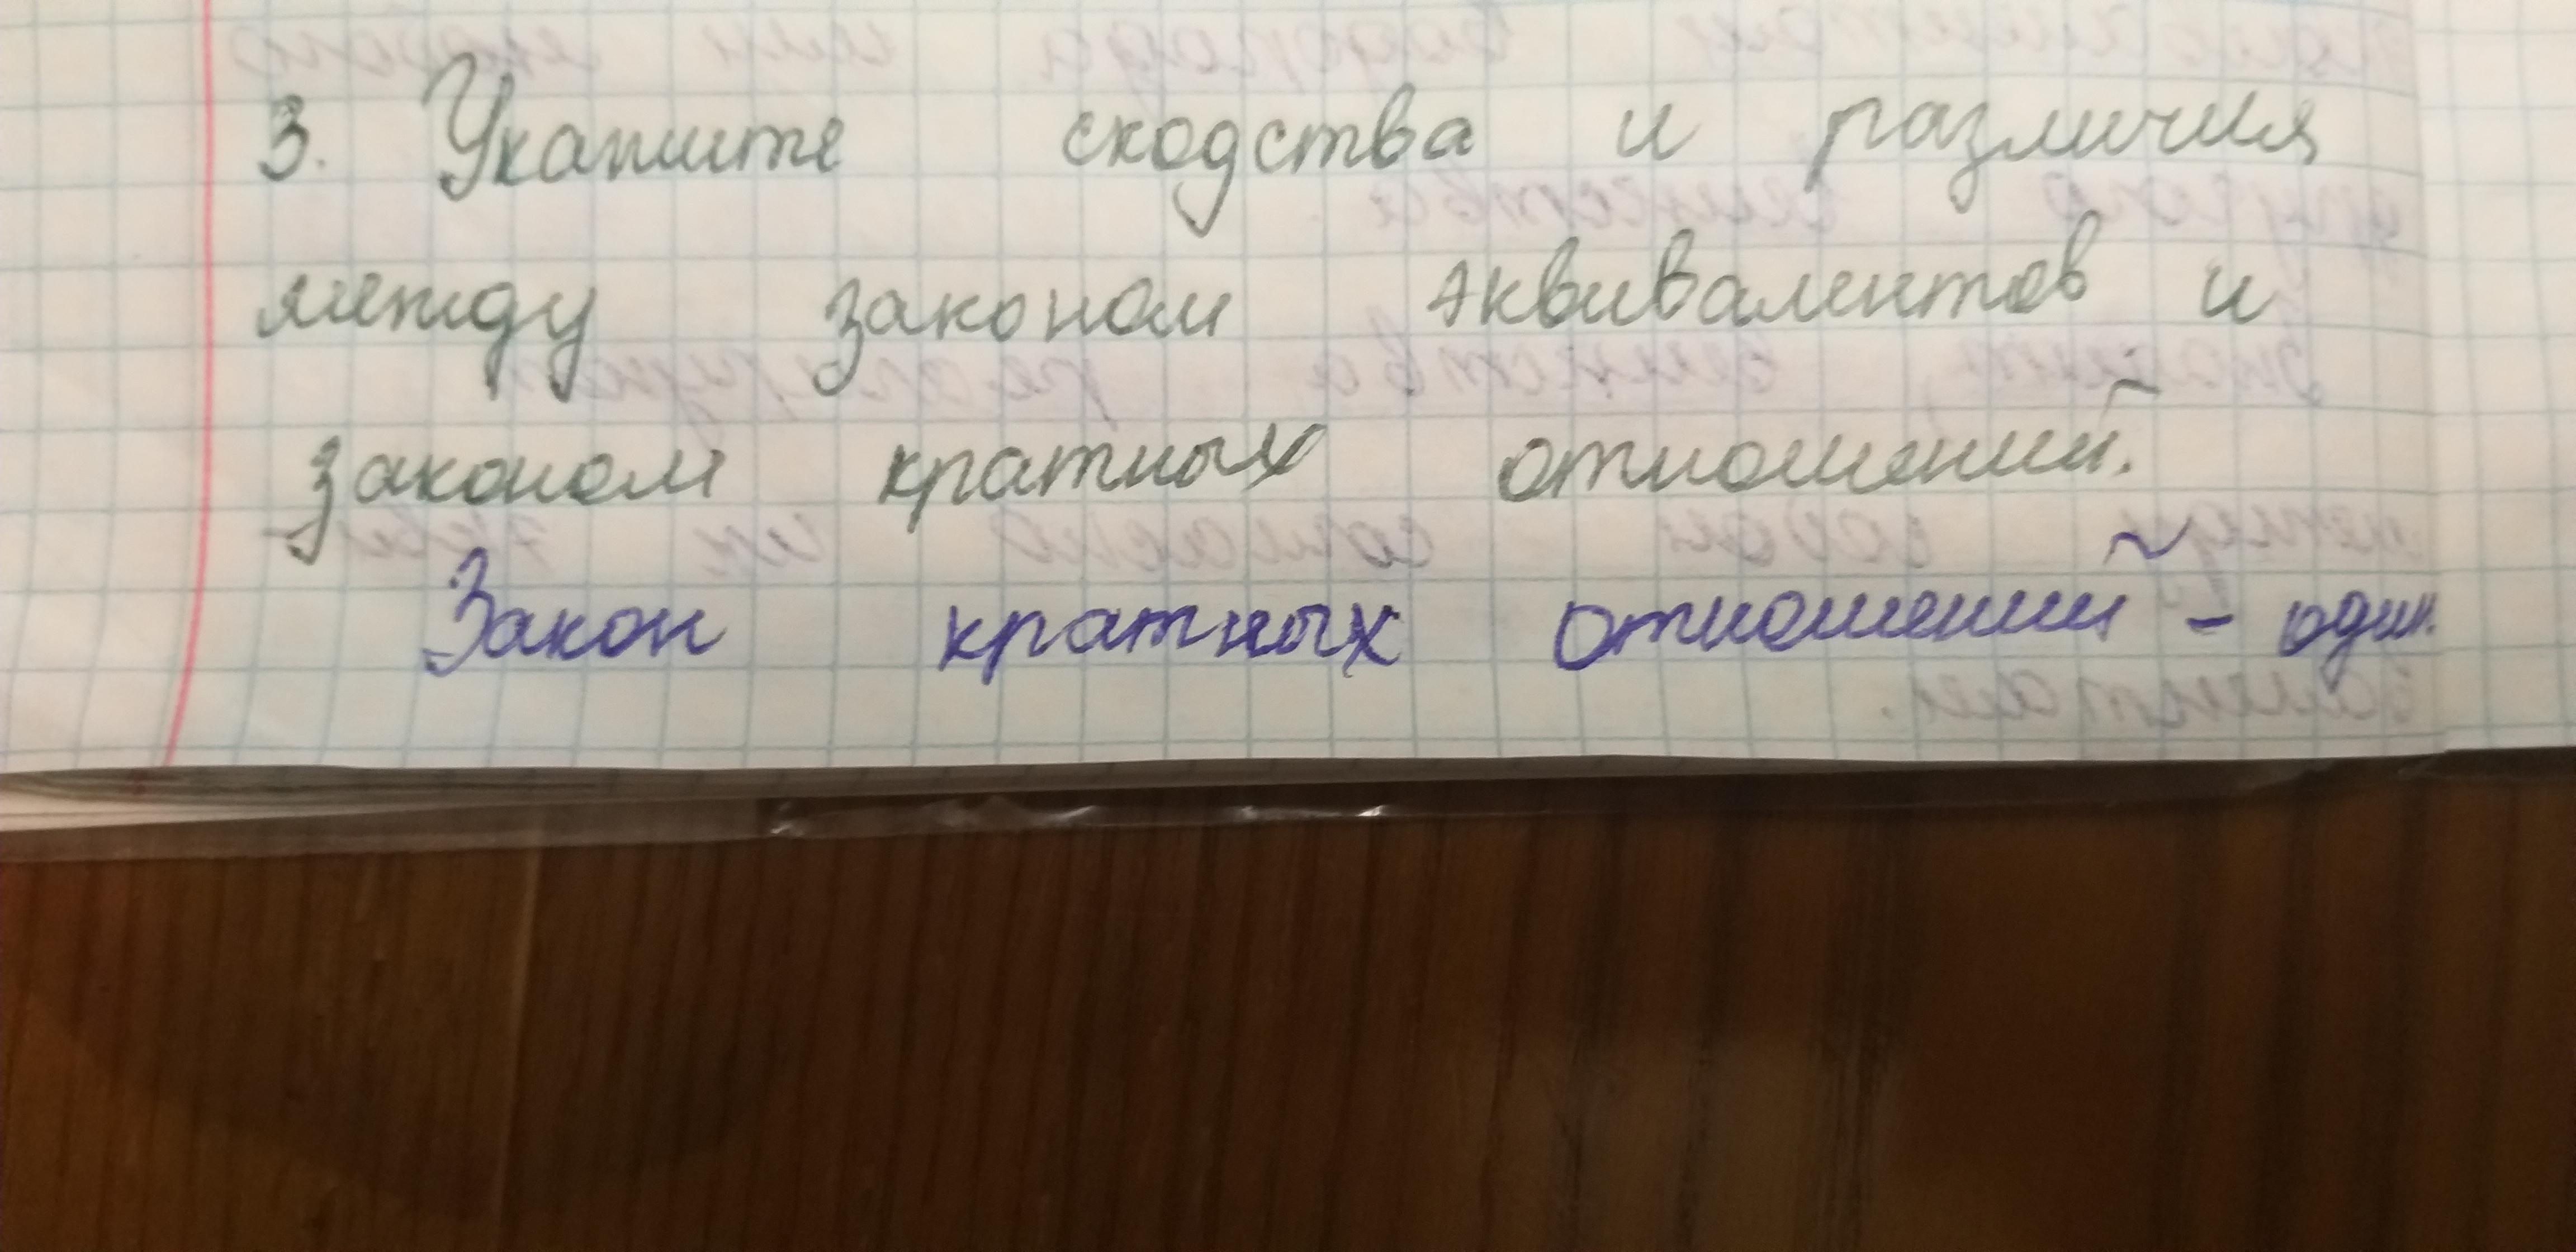 3. Укажите сходства и различия
между законом эквивалентов и
законом кратных отношений.
Закон кратных отношений - один